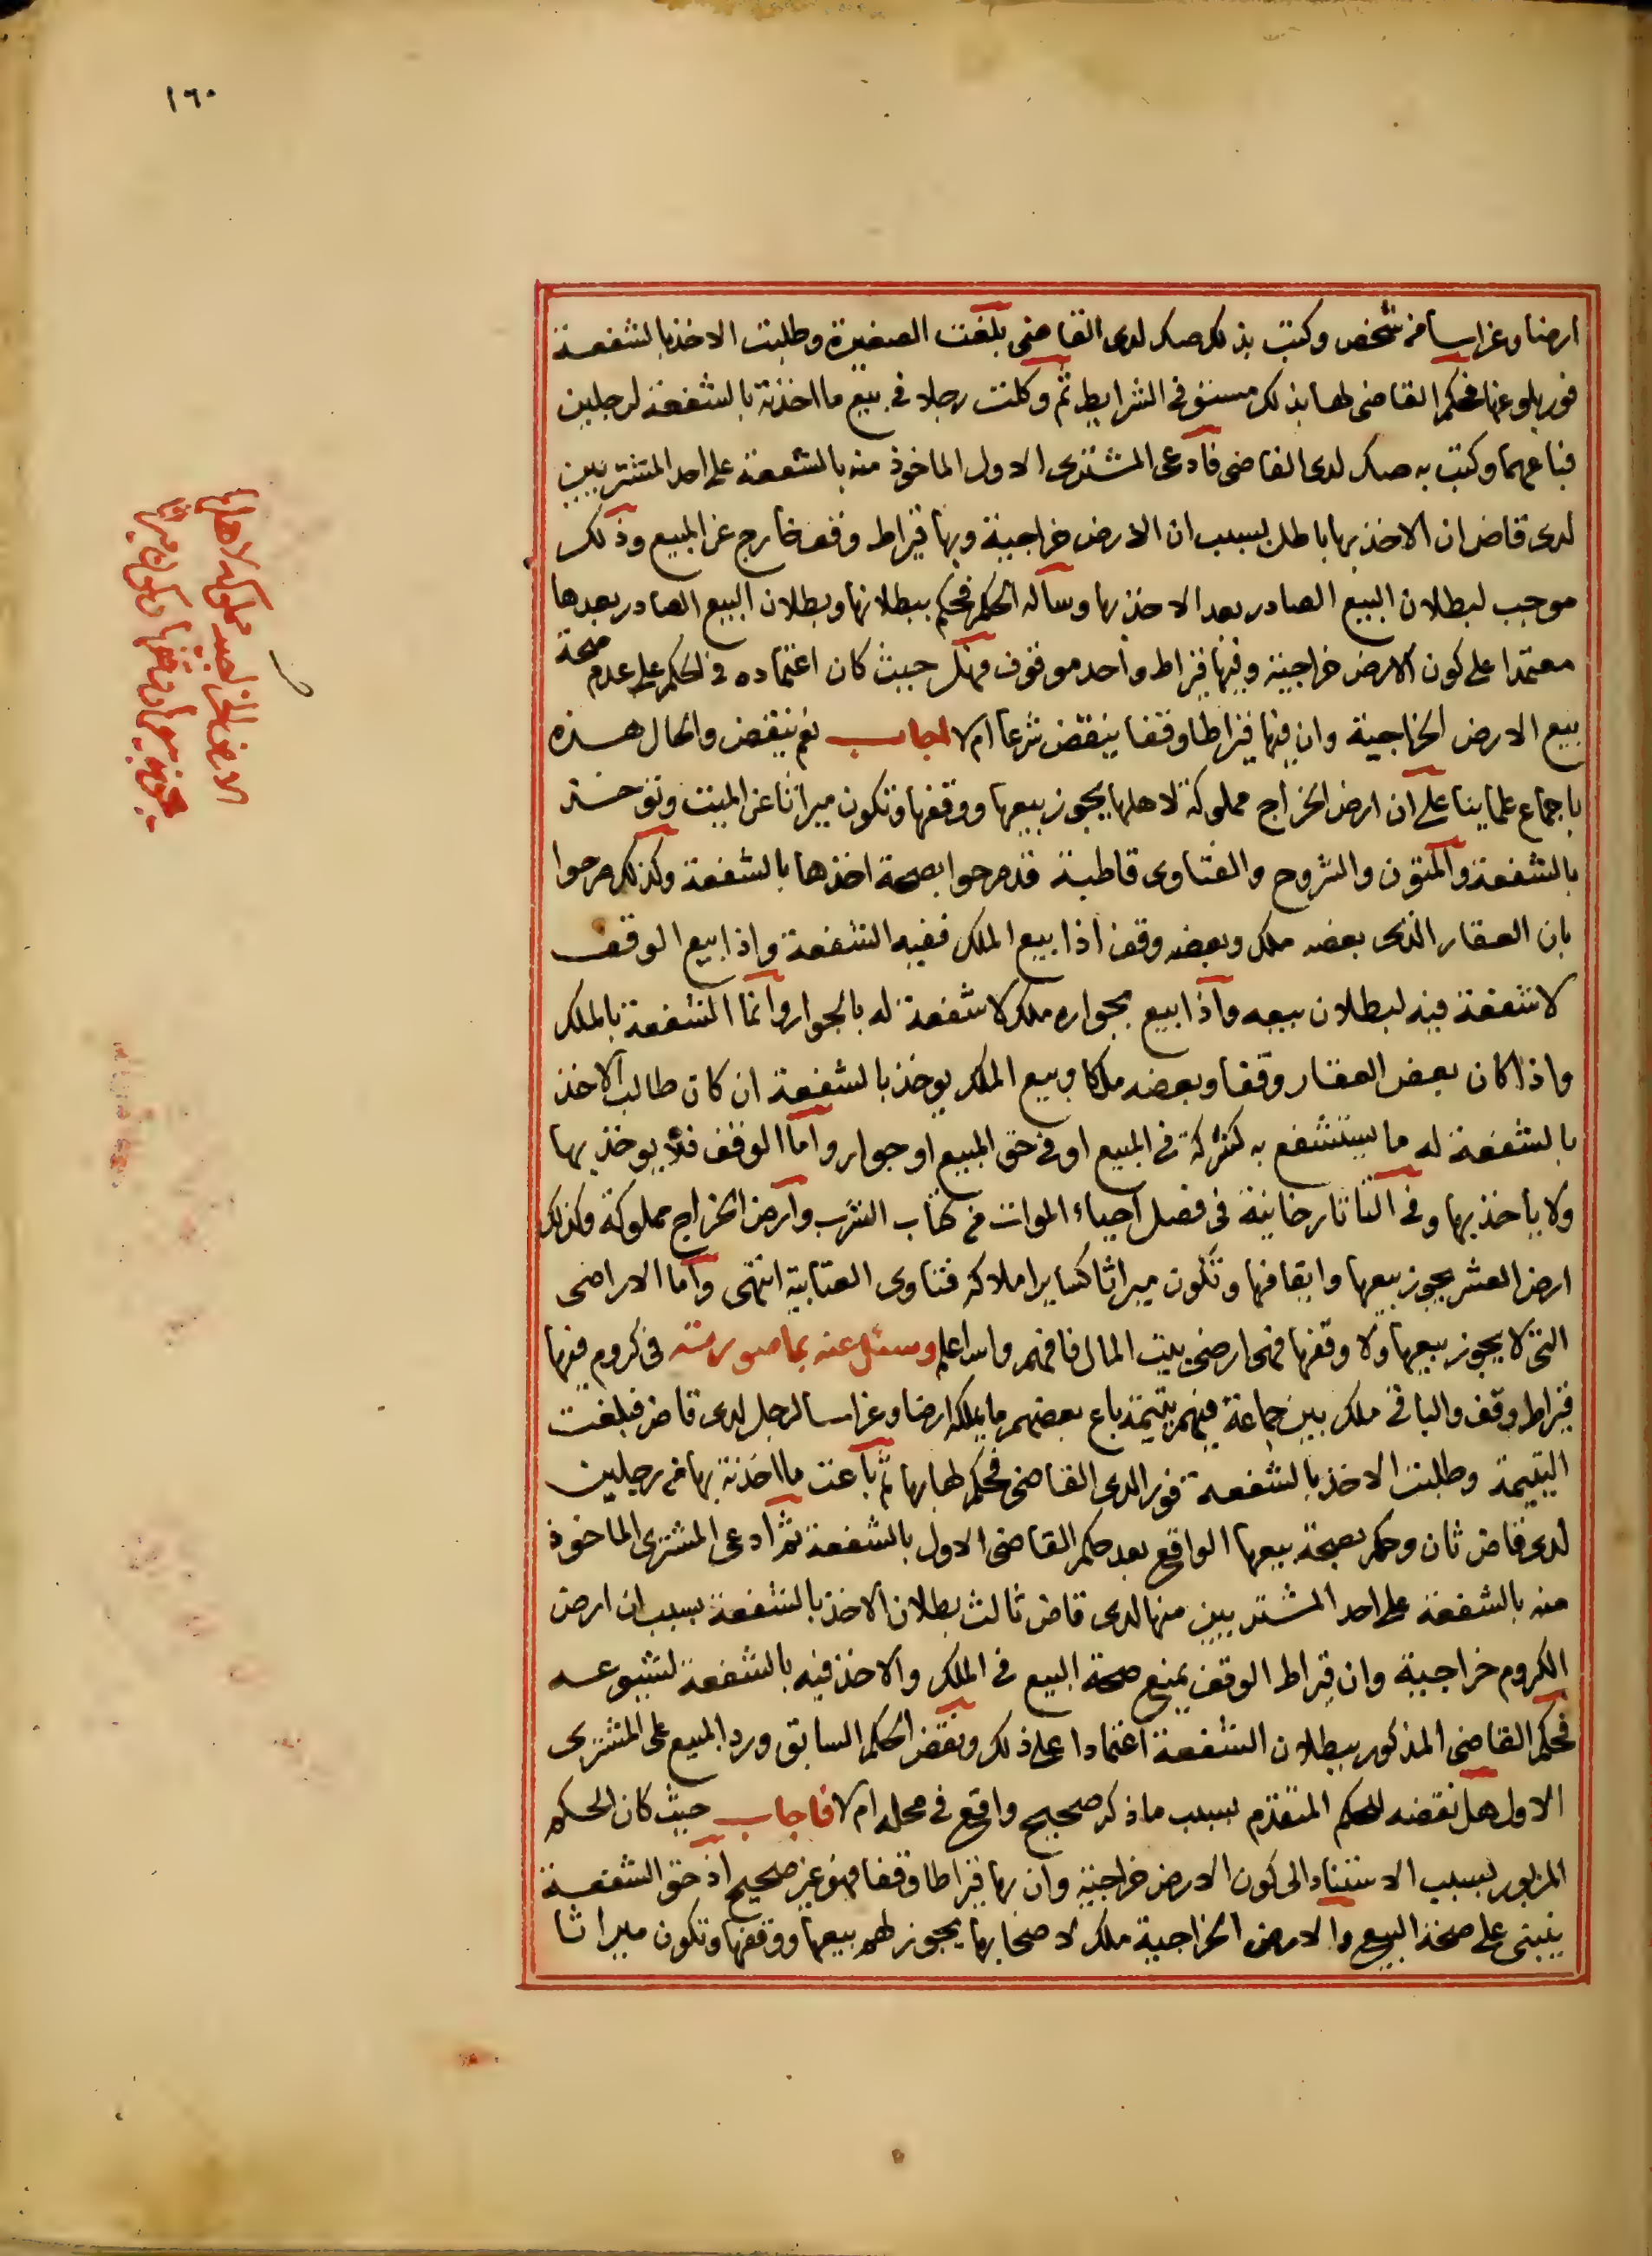 ١٦٠
ارضا وغراسا من شخص وكتب بذلك صك لدى القاضى بلغت الصغيرة وطلبت الاخذ بالشفعة
فور بلوغها فحكم القاضى لها بذلك مستوفى الشرايط ثم وكلت رجلا فى بيع ما اخذته بالشفعة لرجلين
فباعهما وكتب به صك لدى القاضى فادعى المشترى الاول الماخوذ منه بالشفعة على احد المشتريين
لدى قاض ان الاخذ بها باطل بسبب ان الارض خراجية وبها قيراط وقف خارج عن المبيع وذلك
موجب لبطلان البيع الصادر بعد الاخذ بها وساله الحكم فحكم ببطلانها وبطلان البيع الصادر بعدها
معتمدا على كون الارض خراجية وفيها قيراط واحد موقوف فهل حيث كان اعتماده فى الحكم على عدم صحة
بيع الارض الخراجية وان فيها قيراطا وقفا ينقض شرعا ام لا اجاب نعم ينقض والحال هذه
باجماع علماينا على ان ارض الخراج مملوكة لاهلها يجوز بيعها ووقفها وتكون ميراثا عن الميت وتوخذ
بالشفعة والمتون والشروح والفتاوى قاطبة قد صرحوا بصحة اخذها بالشفعة وكذلك صرحوا
بان العقار الذى بعضه ملك وبعضه وقف اذا بيع الملك ففيه الشفعة واذا بيع الوقف
لا شفعة فيه لبطلان بيعه واذا بيع بجواره ملك لا شفعة له بالجوار وانما الشفعة بالملك
واذا كان بعض العقار وقفا وبعضه ملكا وبيع الملك يوخذ بالشفعة ان كان طالب الاخذ
بالشفعة له ما يستشفع به كشركة فى المبيع او فى حق المبيع او جوار واما الوقف فلا يوخذ بها
ولا يأخذ بها وفى التاتارخانية فى فصل احياء الموات من كتاب الشرب وارض الخراج مملوكة وكذلك
ارض العشر يجوز بيعها وايقافها وتكون ميراثا كساير املاكه فتاوى العتابية انتهى واما الاراضى
التى لا يجوز بيعها ولا وقفها فهى اراضى بيت المال فافهم والله اعلم وسئل عنه بما صورته فى كروم فيها
قيراط وقف والباقى ملك بين جماعة فيهم يتيمة باع بعضهم ما يملكه ارضا وغراسا لرجل لدى قاض فبلغت
اليتيمة وطلبت الاخذ بالشفعة فورا لدى القاضى فحكم لها بها ثم باعت ما اخذته بها من رجلين
لدى قاض ثان وحكم بصحة بيعها الواقع بعد حكم القاضى الاول بالشفعة ثم ادعى المشترى الماخوذ
منه بالشفعة على احد المشتريين منها لدى قاض ثالث بطلان الاخذ بالشفعة بسبب ان ارض
الكروم خراجية وان قيراط الوقف يمنع صحة البيع فى الملك والاخذ فيه بالشفعة لشيوعه
فحكم القاضى المذكور ببطلان الشفعة اعتمادا على ذلك ونقض الحكم السابق ورد المبيع على المشترى
الاول هل نقضه للحكم المتقدم بسبب ما ذكر صحيح واقع فى محله ام لا فاجاب حيث كان الحكم
المزبور بسبب الاستناد الى كون الارض خراجية وان بها قيراطا وقفا فهو غير صحيح اذ حق الشفعة
ينبنى على صحة البيع والارض الخراجية ملك لاصحابها يجوز لهم بيعها ووقفها وتكون ميراثا
الارض الخراجية مملوكة لاهلها
يجوز بيعها ووقفها وتكون ميراثا